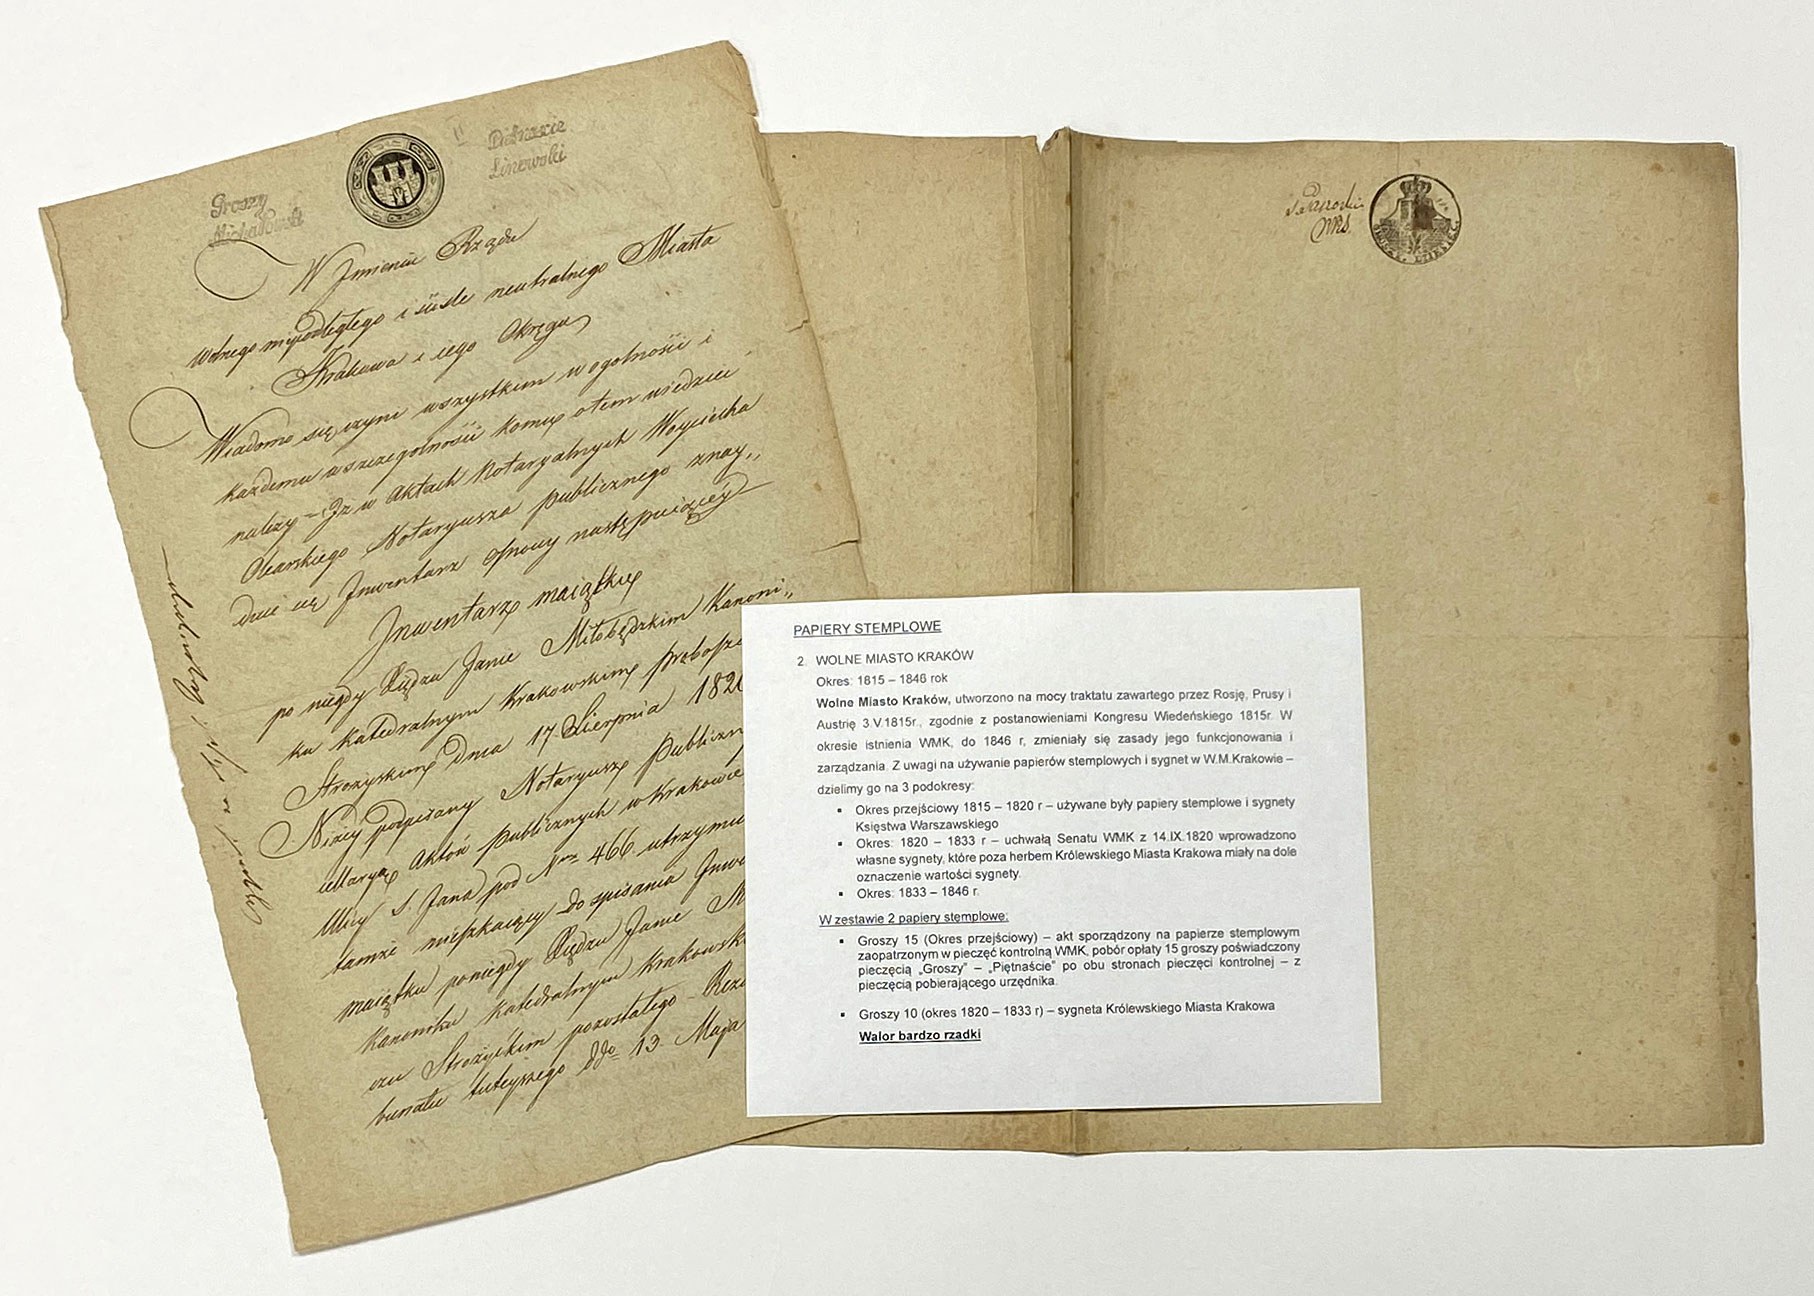 Groszy
Michałowski
Piętnascie
Linowski
W Jmieniu Rządu
wolnego niepodległego i ściśle neutralnego Miasta
Krakowa i iego Okręgu
Wiadomo się czyni wszystkim w ogolności i
każdemu w szczegolności komu o tem wiedzieć
należy – Jż w Aktach Notaryalnych Woyciecha
Olearskiego Notaryusza publicznego znay„
duie się Jnwentarz osnowy następuiącéy
Jnwentarz maiątku
po niegdy Xiędzu Janie Miłobędzkim Kanoni„
ku Katedralnym Krakowskim probosz
Strożyskim dnia 17 Sierpnia 182
Niżey podpisany Notaryusz publiczn
Aktow publicznych w Krakowie
Ulicy S. Jana pod Nrm 466. utrzymu
tamże mieszkaiący do spisania Jnwe
maiątku poniegdy Xiędzu Janie M
Kanoniku Katedralnym Krakowsk
czu Strożyskim pozostałego – Rez
bunału tuteyszego ddo 13. Maja
GROSZY. DZIESIĘĆ.
PAPIERY STEMPLOWE
2. WOLNE MIASTO KRAKÓW
Okres: 1815 – 1846 rok
Wolne Miasto Kraków, utworzono na mocy traktatu zawartego przez Rosję, Prusy i
Austrię 3.V.1815r., zgodnie z postanowieniami Kongresu Wiedeńskiego 1815r. W
okresie istnienia WMK, do 1846 r, zmieniały się zasady jego funkcjonowania i
zarządzania. Z uwagi na używanie papierów stemplowych i sygnet w W.M.Krakowie –
dzielimy go na 3 podokresy:
▪ Okres przejściowy 1815 – 1820 r – używane były papiery stemplowe i sygnety
Księstwa Warszawskiego
▪ Okres: 1820 – 1833 r – uchwałą Senatu WMK z 14.IX.1820 wprowadzono
własne sygnety, które poza herbem Królewskiego Miasta Krakowa miały na dole
oznaczenie wartości sygnety.
▪ Okres: 1833 – 1846 r.
W zestawie 2 papiery stemplowe:
▪ Groszy 15 (Okres przejściowy) – akt sporządzony na papierze stemplowym
zaopatrzonym w pieczęć kontrolną WMK, pobór opłaty 15 groszy poświadczony
pieczęcią „Groszy” – „Piętnaście” po obu stronach pieczęci kontrolnej – z
pieczęcią pobierającego urzędnika.
▪ Groszy 10 (okres 1820 – 1833 r) – sygneta Królewskiego Miasta Krakowa
Walor bardzo rzadki